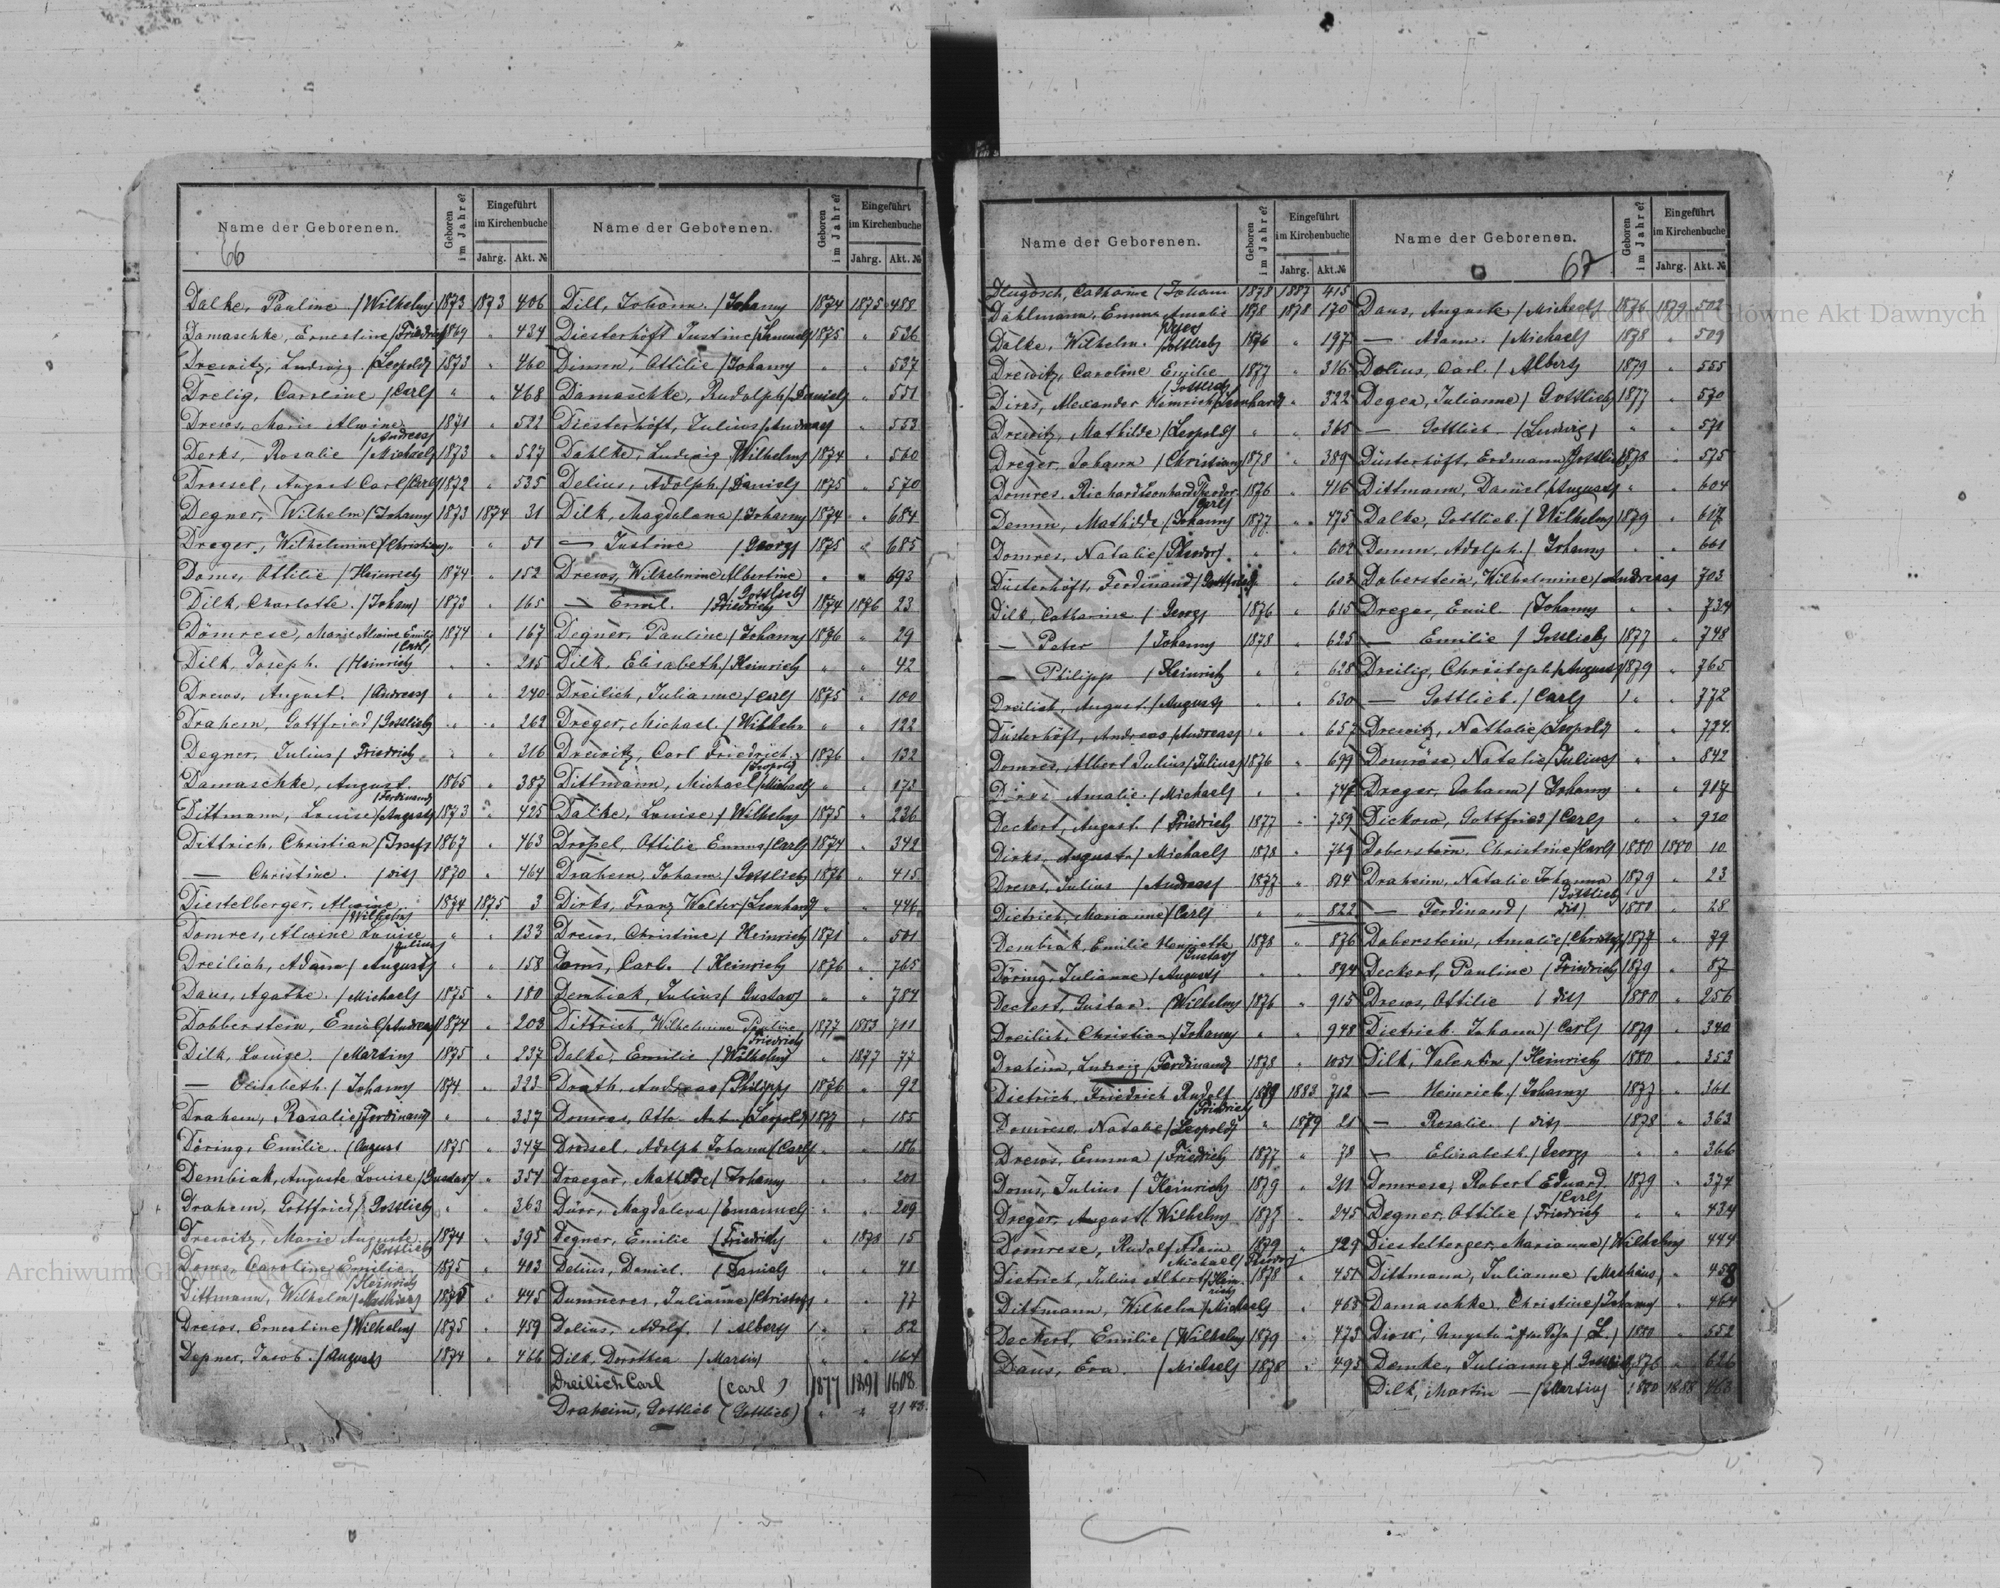 Name der Geborenen.
Geboren im Jahre?
Eingeführt im Kirchenbuche
Jahrg. Akt. №
Name der Geborenen.
Geboren im Jahre?
Eingeführt im Kirchenbuche
Jahrg. Akt. №
66
Dalke, Pauline /Wilhelm/ 1873 1873 406
Damaschke, Ernestine /Friedrich/ 1869 " 434
Drewitz, Ludwig /Leopold/ 1873 " 460
Drelig, Caroline /Carl/ " " 468
Drews, Marie Alwine /Andreas/ 1871 " 522
Derks, Rosalie /Michael/ 1873 " 527
Drossel, August Carl /Carl/ 1872 " 535
Degner, Wilhelm /Johann/ 1873 1874 31
Dreger, Wilhelmine /Christian/ " " 51
Doms, Ottilie /Heinrich/ 1874 " 152
Dilk, Charlotte /Johann/ 1873 " 165
Dömrese, Marie Alwine Emilie /Carl/ 1874 " 167
Dilk, Joseph. /Heinrich/ " " 215
Drews, August. /Andreas/ " " 240
Drahem, Gottfried /Gottlieb/ " " 262
Degner, Julius /Friedrich/ " " 316
Damaschke, August. /Ferdinand/ 1865 " 387
Dittmann, Louise /August/ 1873 " 425
Dittrich, Christian /Josef/ 1867 " 463
— Christine. /dis/ 1870 " 464
Diestelberger, Alwine /Wilhelm/ 1874 1875 3
Domres, Alwine Louise /Julius/ " " 133
Dreilich, Adam /August/ " " 158
Daus, Agathe. /Michael/ 1875 " 180
Dobberstein, Emil /Andreas/ 1874 " 203
Dilk, Louise. /Martin/ 1875 " 237
— Elisabeth. /Johann/ 1874 " 323
Drahem, Rosalie /Ferdinand/ " " 337
Döring, Emilie. /August 1875 " 347
Dembiak, Auguste Louise /Gustav/ " 354
Drahem, Gottfried /Gottlieb/ " " 363
Drewitz, Marie Auguste /Gottlieb/ 1874 " 395
Doms, Caroline Emilie. /Heinrich/ 1875 " 403
Dittmann, Wilhelm /Mathias/ 1875 " 445
Drews, Ernestine /Wilhelm/ 1875 " 459
Depner, Jacob. /August/ 1874 " 466
Dill, Johann. /Johann/ 1874 1875 488
Diesterhöft Justine /Samuel/ 1875 " 526
Dimm, Ottilie /Johann/ " " 537
Damaschke, Rudolph /Daniel/ " 551
Diesterhöft, Julius /Andreas/ " 553
Dahlke, Ludwig /Wilhelm/ 1874 " 560
Delius, Adolph /Daniel/ 1875 " 570
Dilk, Magdalena /Johann/ 1874 " 684
— Justine /Georg/ 1875 " 685
Drews, Wilhelmine Albertine /Gottlieb/ " " 693
— Emil. /Friedrich/ 1874 1876 23
Degner, Pauline /Johann/ 1876 " 29
Dilk, Elisabeth. /Heinrich/ " " 42
Dreilich, Julianne /Carl/ 1875 " 100
Dreger, Michael. /Wilhelm " " 122
Drewitz, Carl Friedrich /Leopold/ 1876 " 132
Dittmann, Michael /Michael/ " " 173
Dalke, Louise /Wilhelm/ 1875 " 226
Drossel, Ottilie Emma /Carl/ 1874 " 342
Drahem, Johann. /Gottlieb/ 1876 " 415
Dirks, Franz Walter /Leonhard/ " " 446
Drews, Christine /Heinrich/ 1871 " 501
Doms, Carl. /Heinrich/ 1876 " 765
Dembiak, Julius /Gustav/ " " 784
Dittrich, Wilhelmine Pauline /Friedrich/ 1877 1883 701
Dalke, Emilie /Wilhelm/ " 1877 77
Drath, Andreas /Philipp/ 1876 " 92
Domres, Otto /Leopold/ 1877 " 155
Drossel, Adolph Johann /Carl/ " " 186
Draeger, Mathilde /Johann/ " " 201
Dürr, Magdalena /Emanuel/ " " 209
Degner, Emilie /Friedrich/ " 1878 15
Delius, Daniel. /Daniel/ " " 41
Dumneres, Julianne /Christof/ " " 77
Delius, Adolf. /Albert/ " " 82
Dilk, Dorothea /Martin/ " " 164
Dreilich Carl (Carl) 1877 1891 1608
Draheim, Gottlieb (Gottlieb) " " 2143
Name der Geborenen.
Geboren im Jahre?
Eingeführt im Kirchenbuche
Jahrg. Akt. №
Name der Geborenen.
Geboren im Jahre?
Eingeführt im Kirchenbuche
Jahrg. Akt. №
67
Dlugosch, Catharine /Johann 1878 1887 415
Dahlmann, Emma Amalie 1878 1878 170
Dalke, Wilhelm. /Gottlieb/ 1876 " 197
Drewitz, Caroline Emilie /Gottlieb/ 1877 " 316
Dires, Alexander Heinrich /Leonhard/ " 322
Drewitz, Mathilde /Leopold/ " " 365
Dreger, Johann /Christian/ 1878 " 389
Domres, Richard Leonhard Theodor /Carl/ 1876 " 416
Demm, Mathilde /Johann/ 1877 " 475
Domres, Natalie /Theodor/ " " 602
Düsterhöft, Ferdinand /Gottfried/ " 603
Dilk, Catharine /Georg/ 1876 " 615
— Peter /Johann/ 1878 " 625
— Philipp /Heinrich/ " 628
Dreilich, August. /August/ " " 630
Düsterhöft, Andreas /Andreas/ " " 657
Domres, Albert Julius /Julius/ 1876 " 699
Dirks Amalie. /Michael/ " 747
Deckert, August. /Friedrich/ 1877 " 759
Dirks, Auguste /Michael/ 1878 " 769
Drews, Julius /Andreas/ 1877 " 814
Dietrich, Marianne /Carl/ " " 822
Dembiak, Emilie Henriette /Gustav/ 1878 " 876
Döring, Julianne /August/ " " 894
Deckert, Gustav. /Wilhelm/ 1876 " 915
Dreilich, Christian /Johann/ " " 948
Draheim, Ludwig /Ferdinand/ 1878 " 1051
Dietrich, Friedrich Rudolf /Friedrich/ 1879 1883 712
Domrese, Natalie /Leopold/ " 1879 21
Drews, Emma /Friedrich/ 1877 " 78
Doms, Julius /Heinrich/ 1879 " 211
Dreger, August /Wilhelm/ 1877 " 245
Domrese, Rudolf Adam 1879 " 429
Dietrich, Julius Albert /Heinrich/ 1878 " 451
Dittmann, Wilhelm /Michael/ " 463
Deckert, Emilie /Wilhelm/ 1879 " 473
Daus, Eva. /Michael/ 1878 " 493
Daus, Auguste /Michael/ 1876 1879 502
— Adam. /Michael/ 1878 " 509
Delius, Carl. /Albert/ 1879 " 555
Degea, Julianne /Gottlieb/ 1877 " 570
— Gottlieb /Ludwig/ " " 571
Düsterhöft, Erdmann /Gottlieb/ 1878 " 575
Dittmann, Daniel /August/ " " 604
Dalke, Gottlieb /Wilhelm/ 1879 " 617
Demm, Adolph. /Johann/ " " 661
Doberstein, Wilhelmine /Andreas/ 703
Dreger, Emil /Johann/ " " 734
— Emilie /Gottlieb/ 1877 " 748
Dreilig, Christoph /August/ 1879 " 765
— Gottlieb. /Carl/ " " 772
Drewitz, Nathalie /Leopold/ " " 774
Domröse Natalie /Julius/ " " 842
Dreger, Johann /Johann/ " " 917
Dickow, Gottfried /Carl/ " " 920
Doberstein, Christine /Carl/ 1880 1880 10
Draheim, Natalie Johanna /Gottlieb/ 1879 " 23
— Ferdinand /dis/ 1880 " 28
Doberstein, Amalie /Christof/ 1877 " 79
Deckert, Pauline /Friedrich/ 1879 " 87
Drews, Ottilie /dis/ 1880 " 256
Dietrich Johann /Carl/ 1879 " 340
Dilk, Valentin /Heinrich/ 1880 " 353
— Heinrich. /Johann/ 1877 " 361
— Rosalie. /dis/ 1878 " 363
— Elisabeth /Georg/ " " 366
Domrese, Robert Eduard /Carl/ 1879 " 374
Degner, Ottilie /Friedrich/ " " 434
Diestelberger, Marianne /Wilhelm/ 444
Dittmann, Julianne /Mathäus/ " 458
Damaschke, Christine /Johann/ " 464
1880 " 552
Demke, Julianne /Gottlieb/ 1876 " 626
Dilk, Martin — /Martin/ 1880 1888 463
Archiwum Główne Akt Dawnych
Archiwum Główne Akt Dawnych